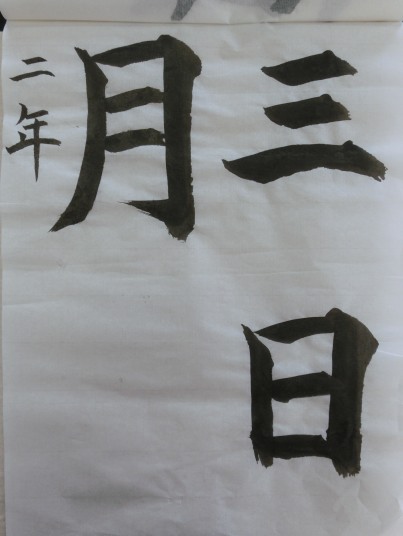 三日
月
二年